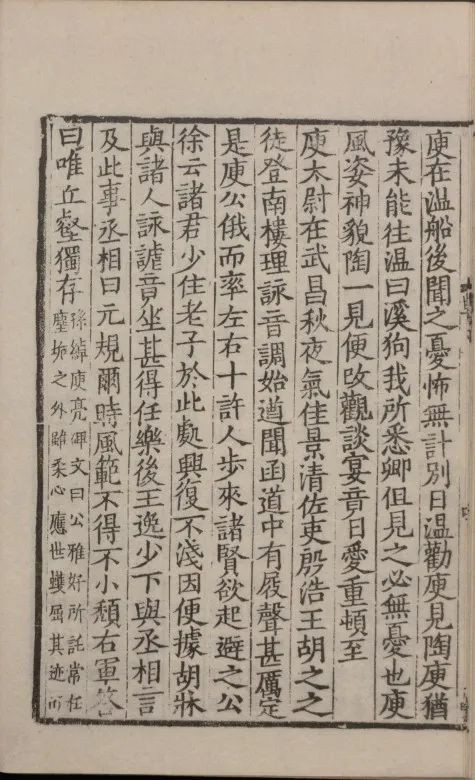 庾在温船後聞之憂怖無計別日温勸庾見陶庾猶
豫未能往温曰溪狗我所悉卿但見之必無憂也庾
風姿神貌陶一見便改觀談宴竟日愛重頓至
庾太尉在武昌秋夜氣佳景清佐吏殷浩王胡之之
徒登南樓理詠音調始遒聞函道中有屐聲甚厲定
是庾公俄而率左右十許人步來諸賢欲起避之公
徐云諸君少住老子於此處興復不淺因便據胡牀
與諸人詠謔竟坐甚得任樂後王逸少下與丞相言
及此事丞相曰元規爾時風範不得不小頽右軍答
曰唯丘壑獨存
孫綽庾亮碑文曰公雅好所託常在
塵垢之外雖柔心應世蠖屈其迹而